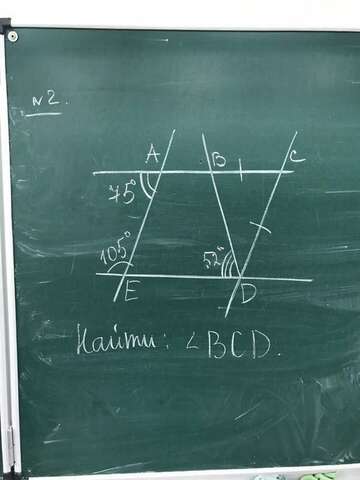 №2.
A B C
75°
105° 52°
E D
Найти: ∠BCD.